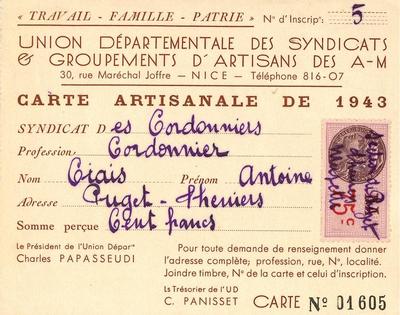 « TRAVAIL - FAMILLE - PATRIE » N° d'Inscripᵒⁿ: 5
UNION DÉPARTEMENTALE DES SYNDICATS
& GROUPEMENTS D'ARTISANS DES A-M
30, rue Maréchal Joffre — NICE — Téléphone 816-07
CARTE ARTISANALE DE 1943
SYNDICAT Des Cordonniers
Profession Cordonnier
Nom Ciais Prénom Antoine
Adresse Puget-Theniers
Somme perçue Cent francs
Le Président de l'Union Départˡᵉ
Charles PAPASSEUDI
Pour toute demande de renseignement donner
l'adresse complète; profession, rue, N°, localité.
Joindre timbre, N° de la carte et celui d'inscription.
Le Trésorier de l'UD
C. PANISSET
CARTE N° 01605